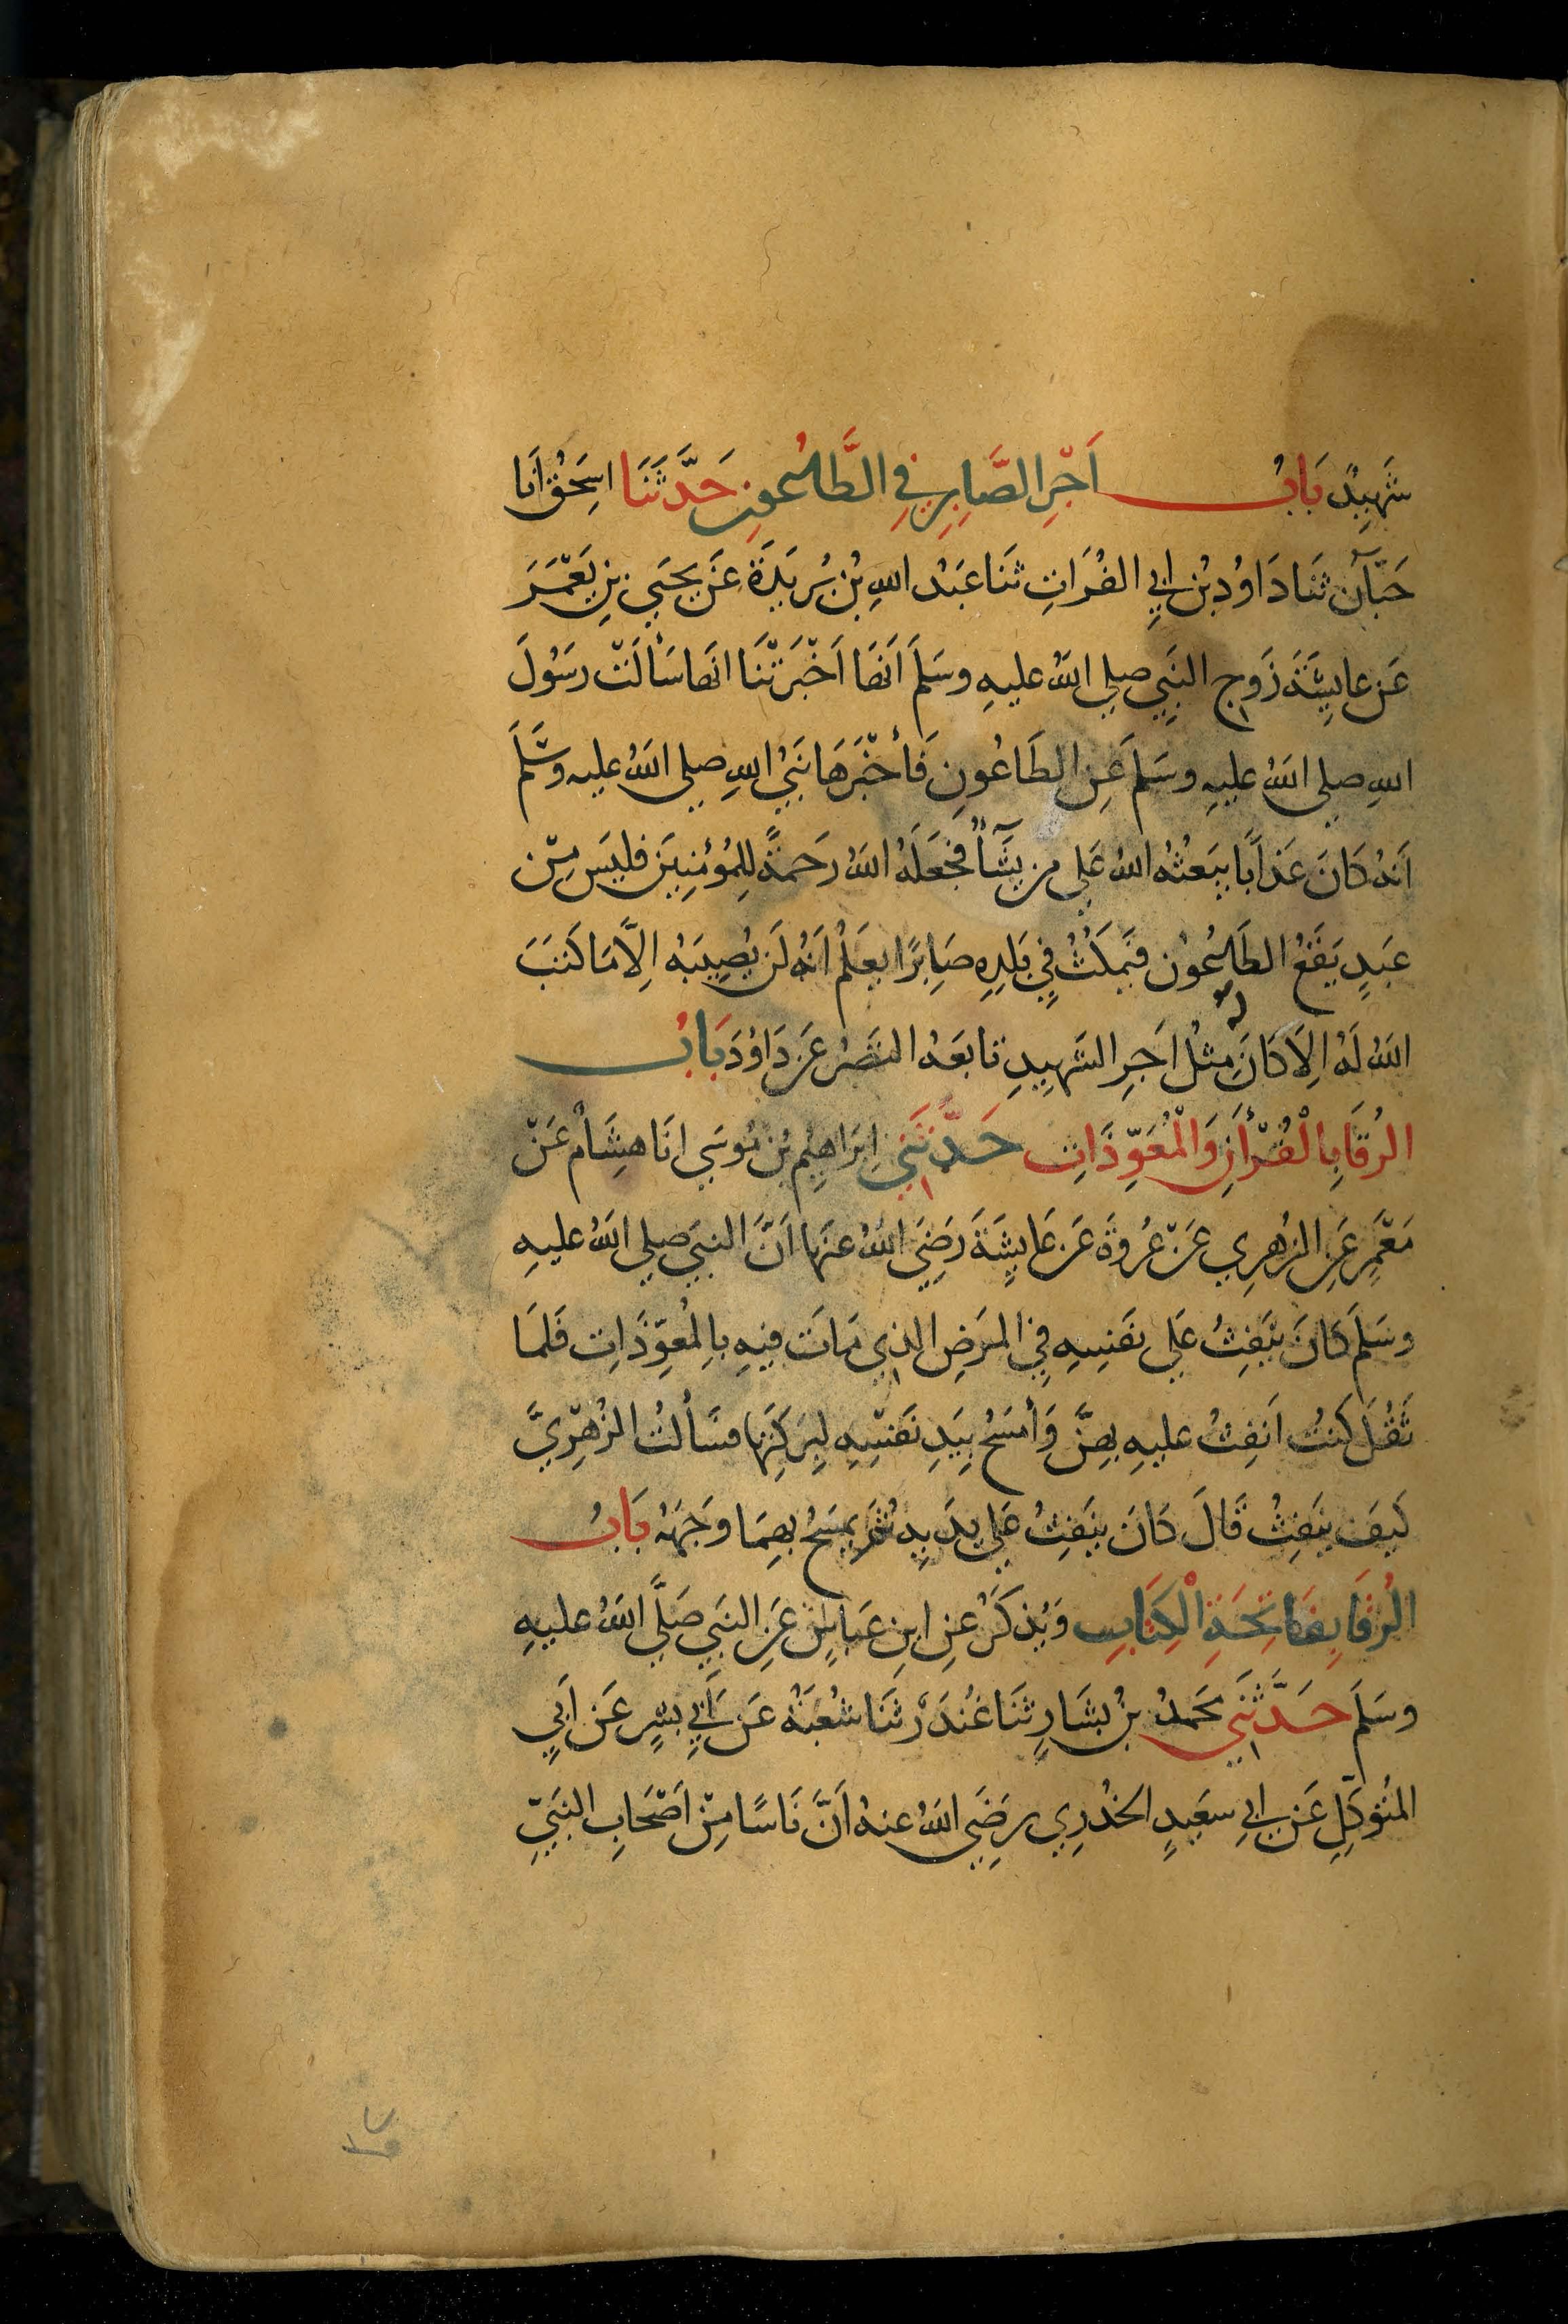 شَهِيدٌ بَابُ اَجْرِ الصَّابِرِ فِي الطَّاعُونِ حَدَّثَنَا اسِحَقُ اَنَا
حَبَّانُ ثَنَا دَاوُد بْنُ ابِي الفُرَاتِ ثَنَا عَبْد اللهِ بْنُ بُرَيدَةَ عَنْ يحيَي بنِ يَعْمَرَ
عَن عايِشَةَ زَوجِ النَبِيِ صلي اللهُ عليهِ وسَلمَ اَنهَا اَخْبَرَتْنَا انَها سَأَلَتْ رسَوُلَ
اللهِ صلي اللهُ عليهِ وسَلمَ عَنِ الطَاعُونِ فَأخْبَرَهَا نَبيُ اللهِ صلي اللهُ عليه وسَّلَمَ
اَنهُ كَانَ عَذابًا يبَعثُه اللهُ عَلي من يشَآءُ فَجَعَلَهُ اللهُ رَحمةً لِلمُؤمِنِينَ فليَس مِنْ
عَبدٍ يَقَعُ الطَاعُون فيَمكُثُ فِي بَلدِهِ صَابِرًا يعَلَمُ اَنهُ لَن يُصِيبَهُ اِلاَّ مَا كَتبَ
اللهُ لَهُ اِلاَ كانَ لهُ مِثلُ اَجرِ الشَهِيدِ تابعَهُ النَضرُ عَن دَاوُدَ بَابُ
الرُقَا بِالْقُرْأنِ وَالْمُعَوِّذَاتِ حَدَّثَنِي اِبرَاهِيمُ بن مُوسَي انَا هشِامٌ عَنْ
مَعْمَرٍ عَنِ الزُهرِي عَنْ عُروةَ عَن عَايِشَةَ رَضِيَ اللهُ عنهَا اَنَّ النبيَ صلي اللهُ عليهِ
وسَلمَ كانَ ينَفِثُ عَلي نفَسِهِ فِي المرَضِ الذِي مَاتَ فيهِ بالِمُعوِّذَاتِ فَلمَا
ثَقُلَ كنتُ اَنفِثُ عليهِ بِهنَّ وَأمسَحُ بيَدِ نفَسْهِ لِبرَكتِهَا فسَألتُ الزُهْرِيَّ
كَيفَ ينَفِثُ قَالَ كانَ ينَفِثُ علي يدَيهِ ثمَ يمسَحُ بهِمَا وجَههُ بَابُ
الرُقَا بِفَاتِحَةِ الْكِتَابِ وَيُذكَرُ عَنِ ابنِ عَباسٍ عَنِ النبَي صَلَّي اللهُ عليهِ
وسَلمَ حَدَّثَنِي محَمدُ بنُ بشَارٍ ثنَا غُندَرٌ ثنَا شُعبَةُ عَن اَبِي بشٍرِ عَن اَبِي
المتُوكِلِ عَن ابي سعَيدٍ الخدْرِي رضَيِ اللهُ عنهُ اَنَّ نَاسًا مِنْ اَصْحَابِ النبَيِّ